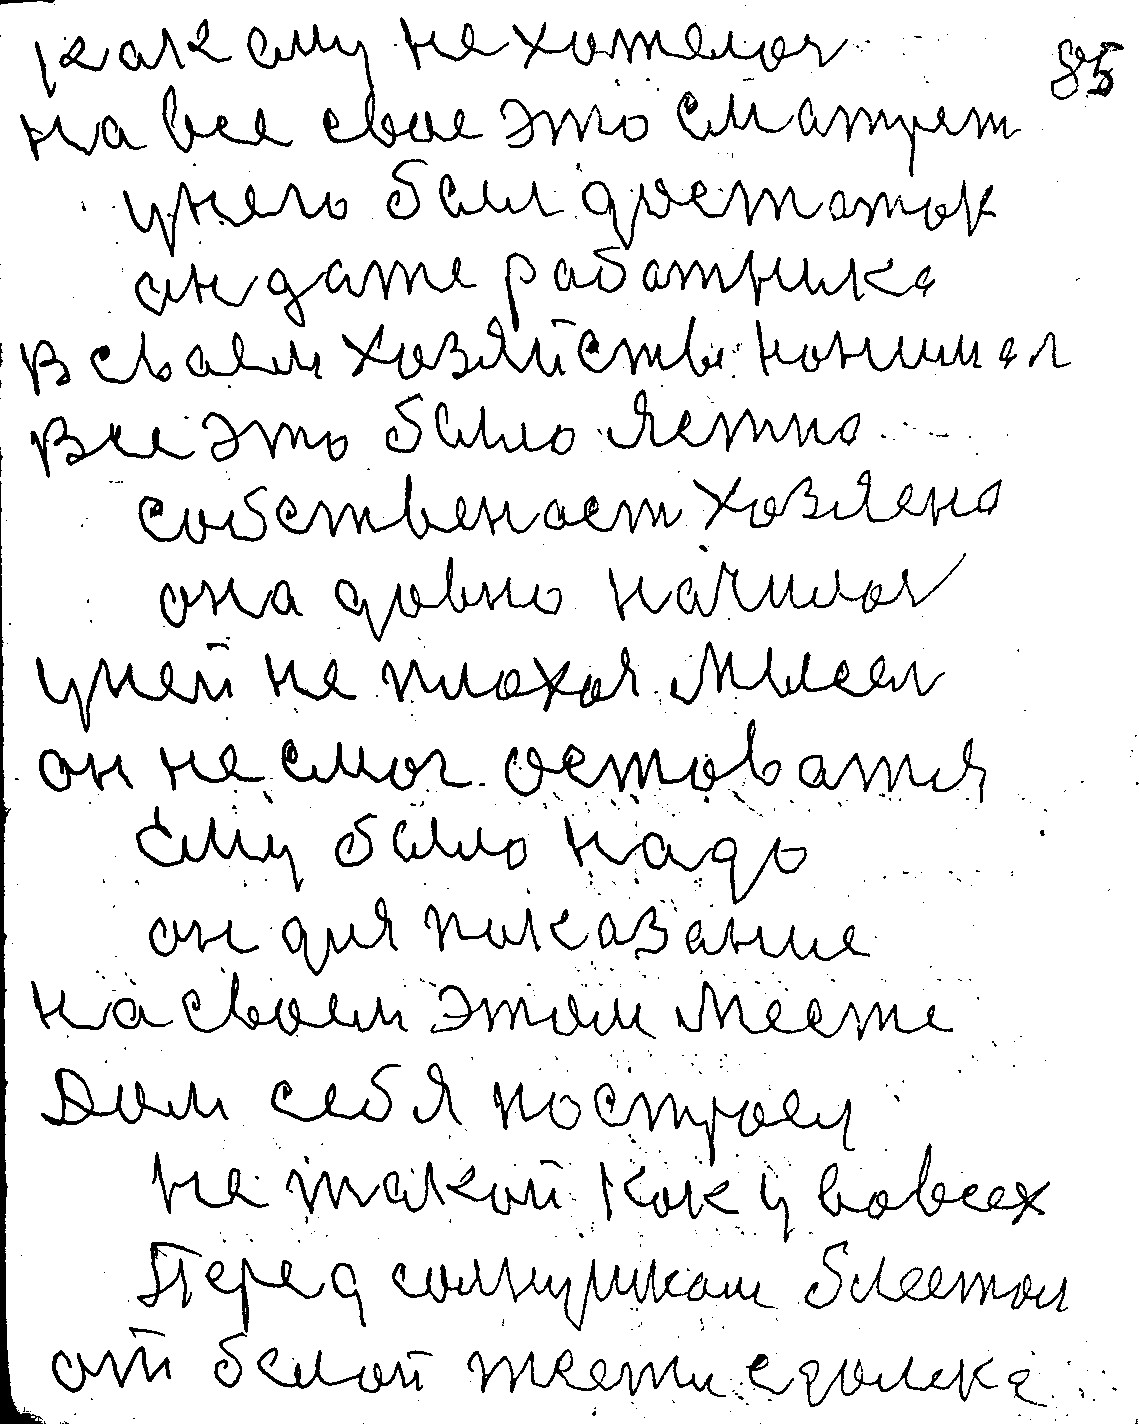 как ему не хотелос
85
на все свое это сматрет
унего бал достаток
он даже работника
в сваем хозяйстве нонимал
все это бало яетно
собственост хозяена
она давно начилос
уней не плохоя мысел
он не смог остоватся
ему бало надо
он для показание
на своем этом месте
Дом себя построел
не такой как у вовсех
Перед солнушком блестол
от белой жести едолека